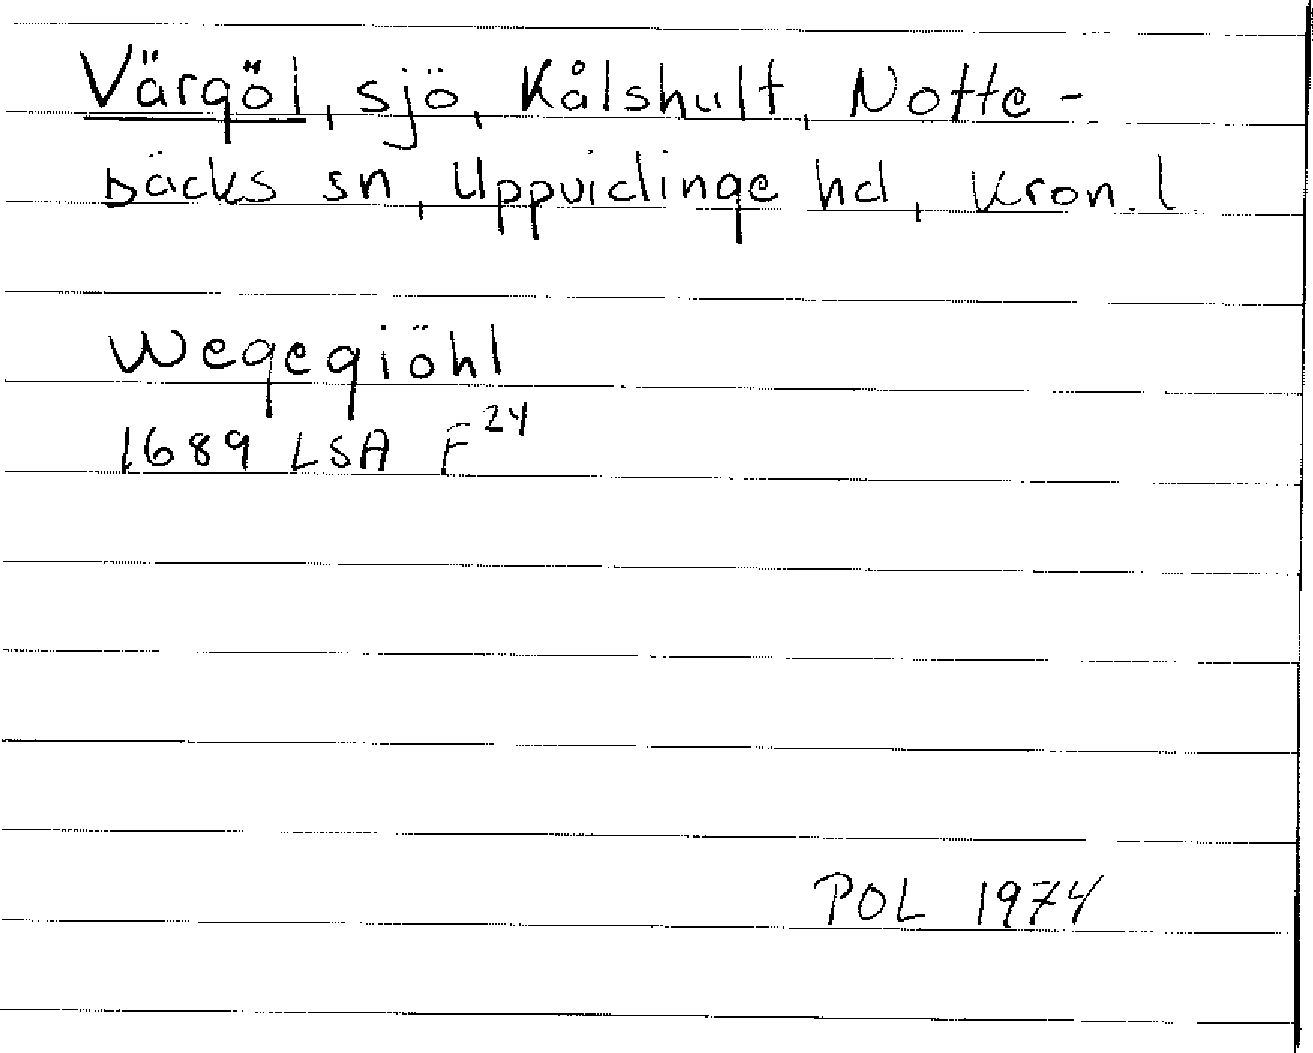 Värgöl, sjö, Kålshult, Notte-
bäcks sn, Uppvidinge hd, Kron. l
Wegegiöhl
1689 LSA F 24
POL 1974